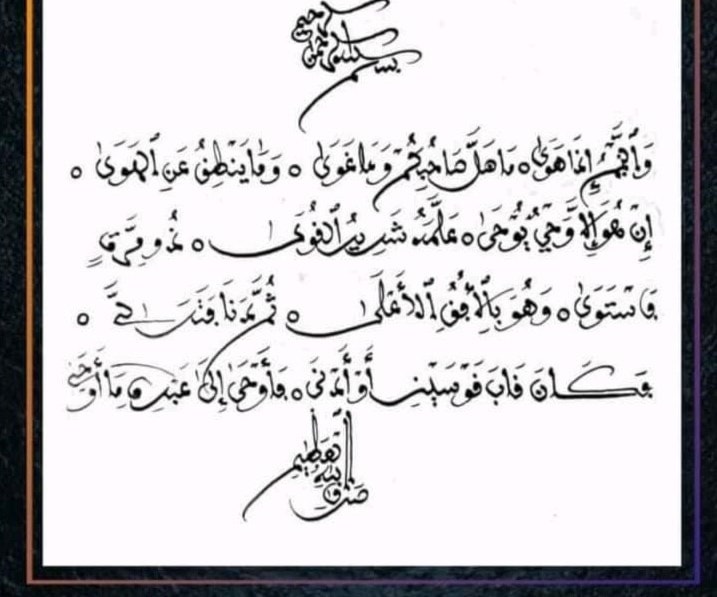 بسم الله الرحمن الرحيم
وَالنَّجْمِ إِذَا هَوَىٰ ۝ مَا ضَلَّ صَاحِبُكُمْ وَمَا غَوَىٰ ۝ وَمَا يَنْطِقُ عَنِ الْهَوَىٰ ۝
إِنْ هُوَ إِلَّا وَحْيٌ يُوحَىٰ ۝ عَلَّمَهُ شَدِيدُ الْقُوَىٰ ۝ ذُو مِرَّةٍ
فَاسْتَوَىٰ ۝ وَهُوَ بِالْأُفُقِ الْأَعْلَىٰ ۝ ثُمَّ دَنَا فَتَدَلَّىٰ ۝
فَكَانَ قَابَ قَوْسَيْنِ أَوْ أَدْنَىٰ ۝ فَأَوْحَىٰ إِلَىٰ عَبْدِهِ مَا أَوْحَىٰ
صدق الله العظيم